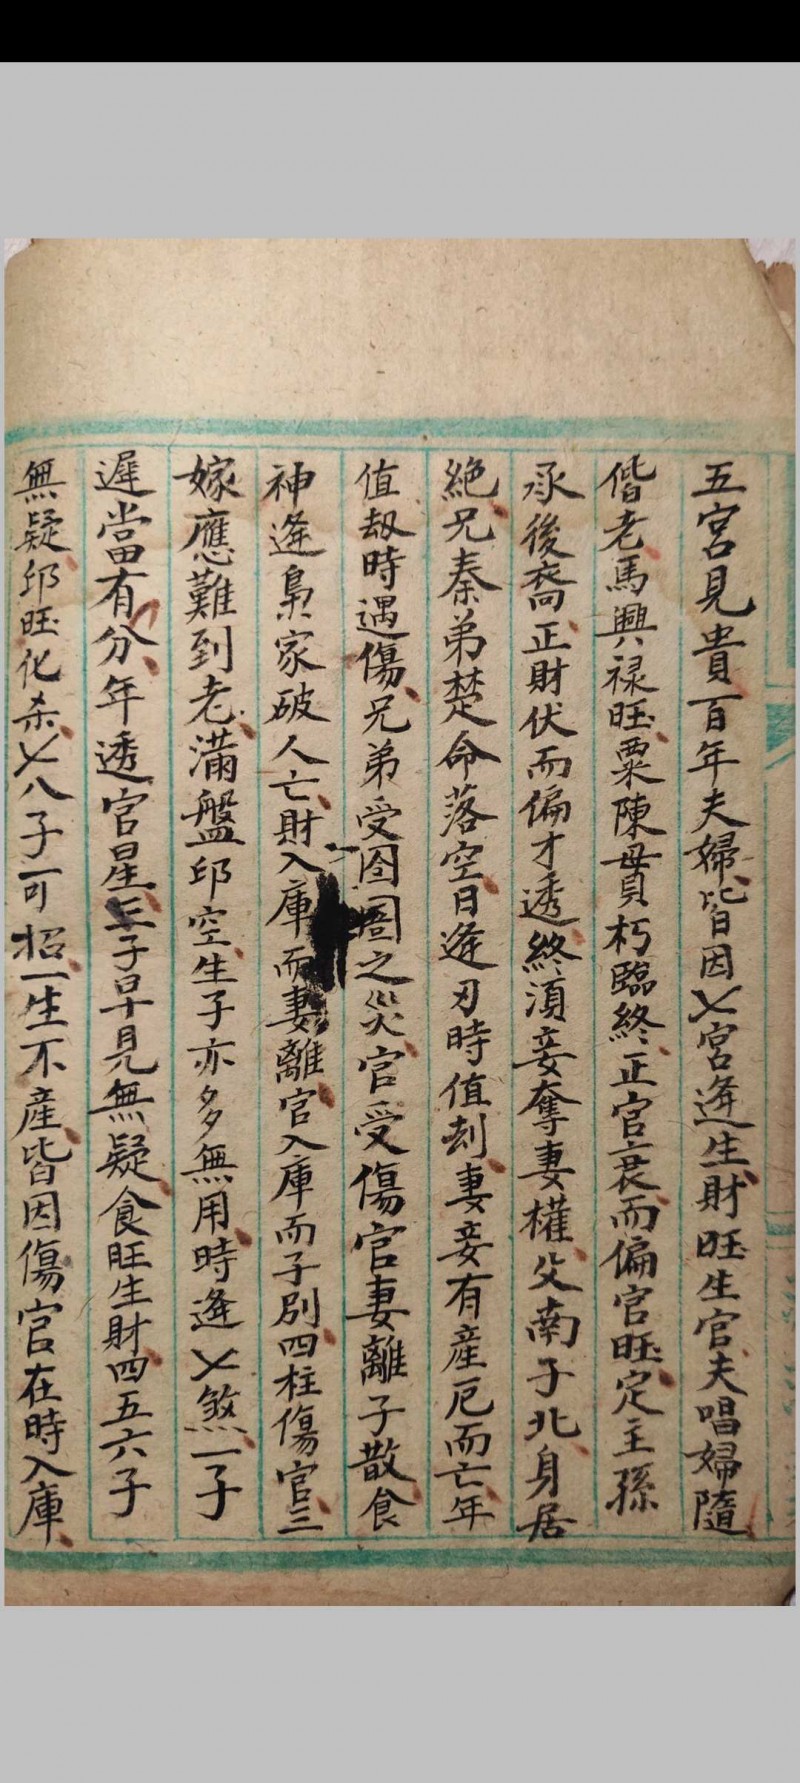 五宮見貴百年夫婦皆因〤宮逢生財旺生官夫唱婦隨
偕老馬興禄旺粟陳貫朽臨終正官衰而偏官旺定主孫
承後裔正財伏而偏才透終須妾奪妻權父南子北身居
絶兄秦弟楚命落空日逢刃時值刦妻妾有産厄而亡年
值刼時遇傷兄弟受囹圄之災官受傷官妻離子散食
神逢梟家破人亡財入庫而妻離官入庫而子別四柱傷官三
嫁應難到老滿盤印空生子亦多無用時逢〤煞一子
遲當有分年透官星三子早見無疑食旺生財四五六子
無疑印旺化杀〤八子可招一生不産皆因傷官在時入庫